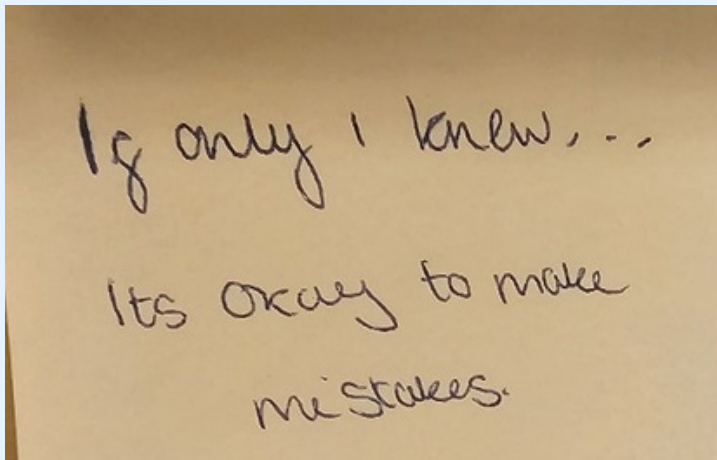 If only i knew...
Its okay to make
mistakes.